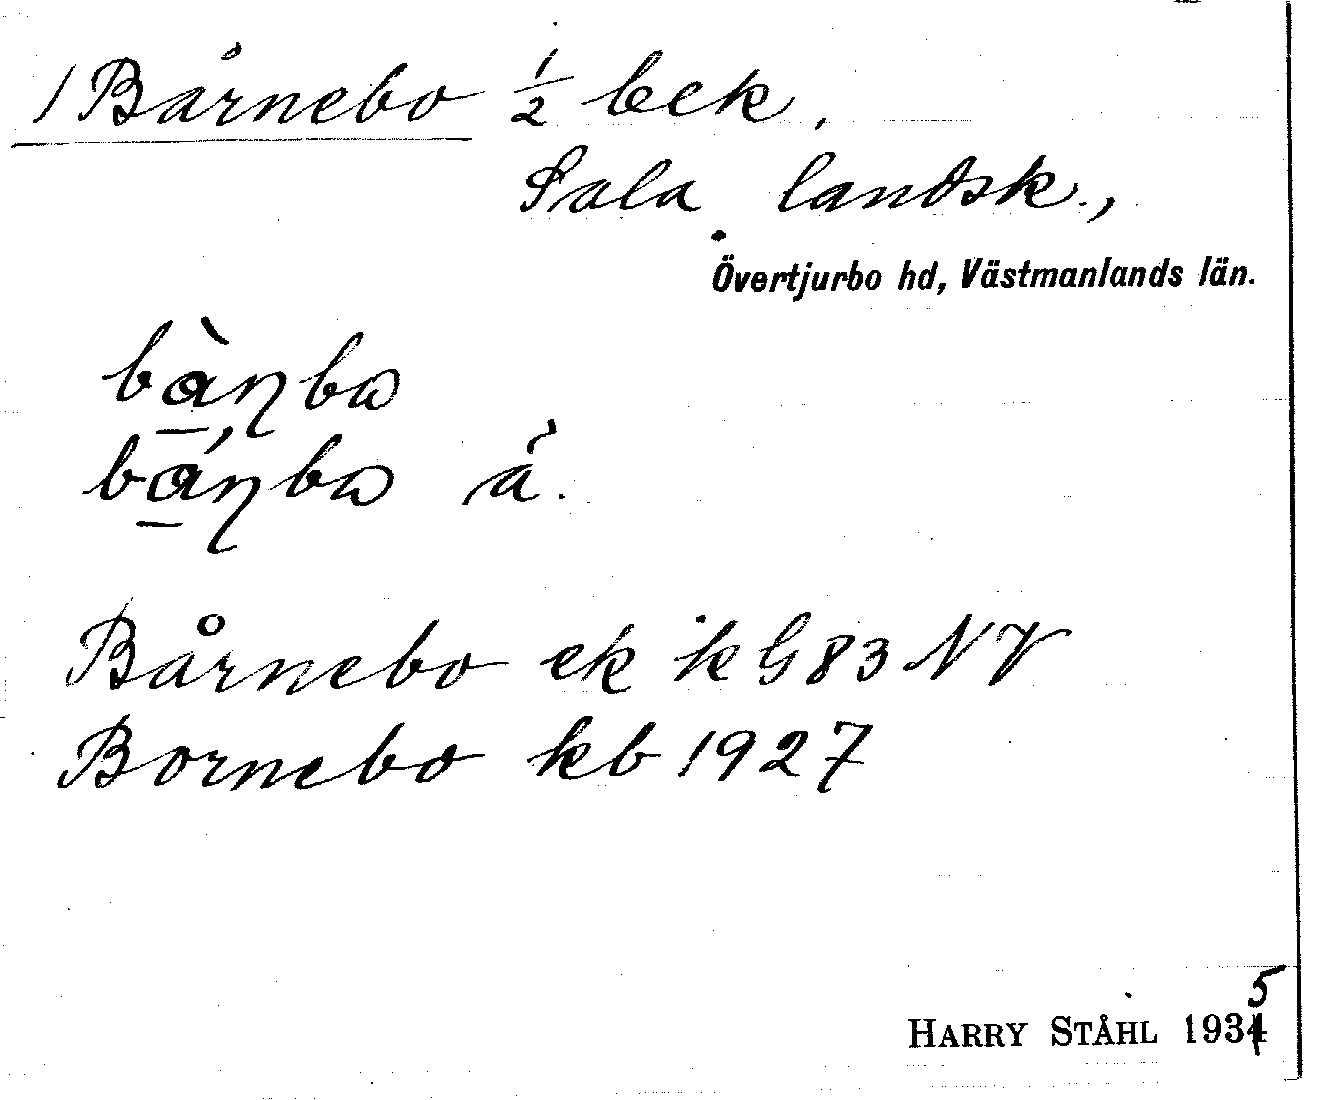 1 Bårnebo ½ bek.
Sala landsk.,
Övertjurbo hd, Västmanlands län.
Bårnebo ek k G 83 NV
Bornebo kb 1927
5
HARRY STÅHL 1934